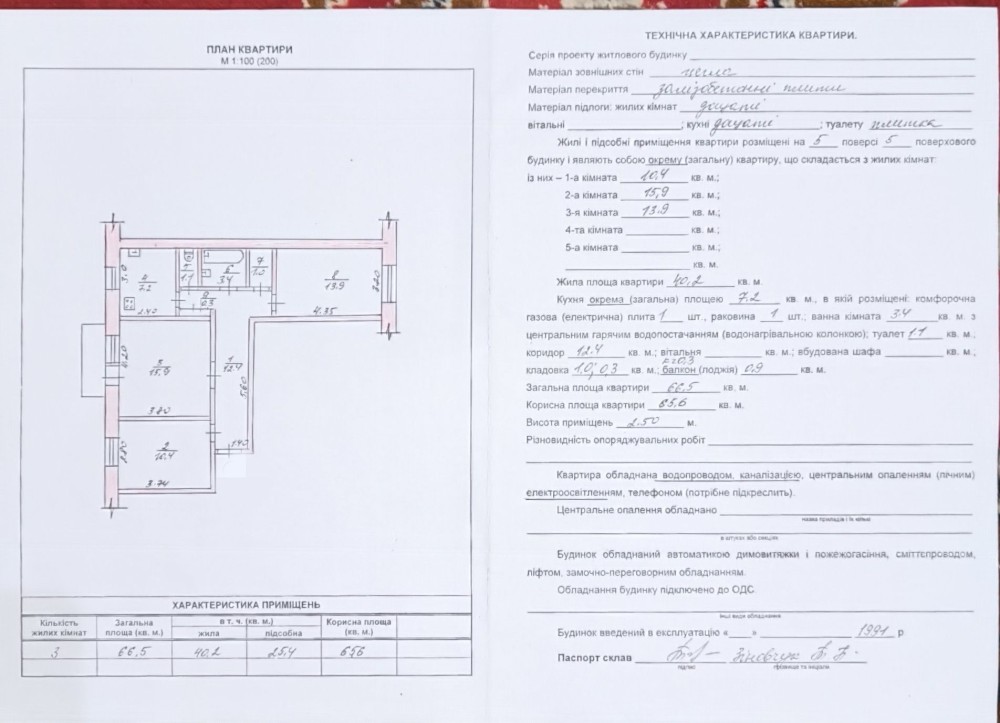 ПЛАН КВАРТИРИ
М 1:100 (200)
3.0
4
7.2
2.40
1.1
6
3.4
7
1.0
0.3
8
13.9
3.20
4.35
4.20
3
15.9
3.80
1
12.4
5.60
1.40
2
10.4
2.80
3.74
ХАРАКТЕРИСТИКА ПРИМІЩЕНЬ
Кількість жилих кімнат Загальна площа (кв. м.) в т. ч. (кв. м.) жила підсобна Корисна площа (кв. м.)
3 66,5 40,2 25.4 65.6
ТЕХНІЧНА ХАРАКТЕРИСТИКА КВАРТИРИ.
Серія проекту житлового будинку
Матеріал зовнішних стін цегла
Матеріал перекриття залізобетонні плити
Матеріал підлоги: жилих кімнат дощаті
вітальні ; кухні дощаті ; туалету плитка
Жилі і підсобні приміщення квартири розміщені на 5 поверсі 5 поверхового
будинку і являють собою окрему (загальну) квартиру, що складається з жилих кімнат:
із них – 1-а кімната 10,4 кв. м.;
2-а кімната 15,9 кв. м.;
3-я кімната 13.9 кв. м.;
4-та кімната кв. м.;
5-а кімната кв. м.;
кв. м.
Жила площа квартири 40,2 кв. м.
Кухня окрема (загальна) площею 7.2 кв. м., в якій розміщені: комфорочна
газова (електрична) плита 1 шт., раковина 1 шт.; ванна кімната 3.4 кв. м. з
центральним гарячим водопостачанням (водонагрівальною колонкою); туалет 1.1 кв. м.,
коридор 12.4 кв. м.; вітальня кв. м.; вбудована шафа кв. м.;
кладовка 1,0; 0,3 кв. м.; балкон (лоджія) 0,9 кв. м.
Загальна площа квартири 66,5 кв. м.
Корисна площа квартири 65,6 кв. м.
Висота приміщень 2.50 м.
Різновидність опоряджувальних робіт
Квартира обладнана водопроводом, каналізацією, центральним опаленням (пічним)
електроосвітленням, телефоном (потрібне підкреслить).
Центральне опалення обладнано
назва приладів і їх кільк.
в штуках або секціях
Будинок обладнаний автоматикою димовитяжки і пожежогасіння, сміттєпроводом,
ліфтом, замочно-переговорним обладнанням.
Обладнання будинку підключено до ОДС.
інші види обладнання
Будинок введений в експлуатацію «__» 1991 р
Паспорт склав
підпис прізвище та ініціали